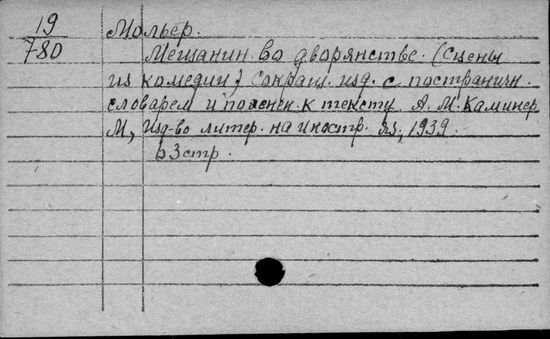 19
780
Мольер.
Мещанин во дворянстве. (Сцены
из комедии) Сокращ. изд. с постраничн.
словарем и пояснен. к тексту А. М. Каминер
М, Изд-во литер. на иностр. яз., 1939.
63 стр.